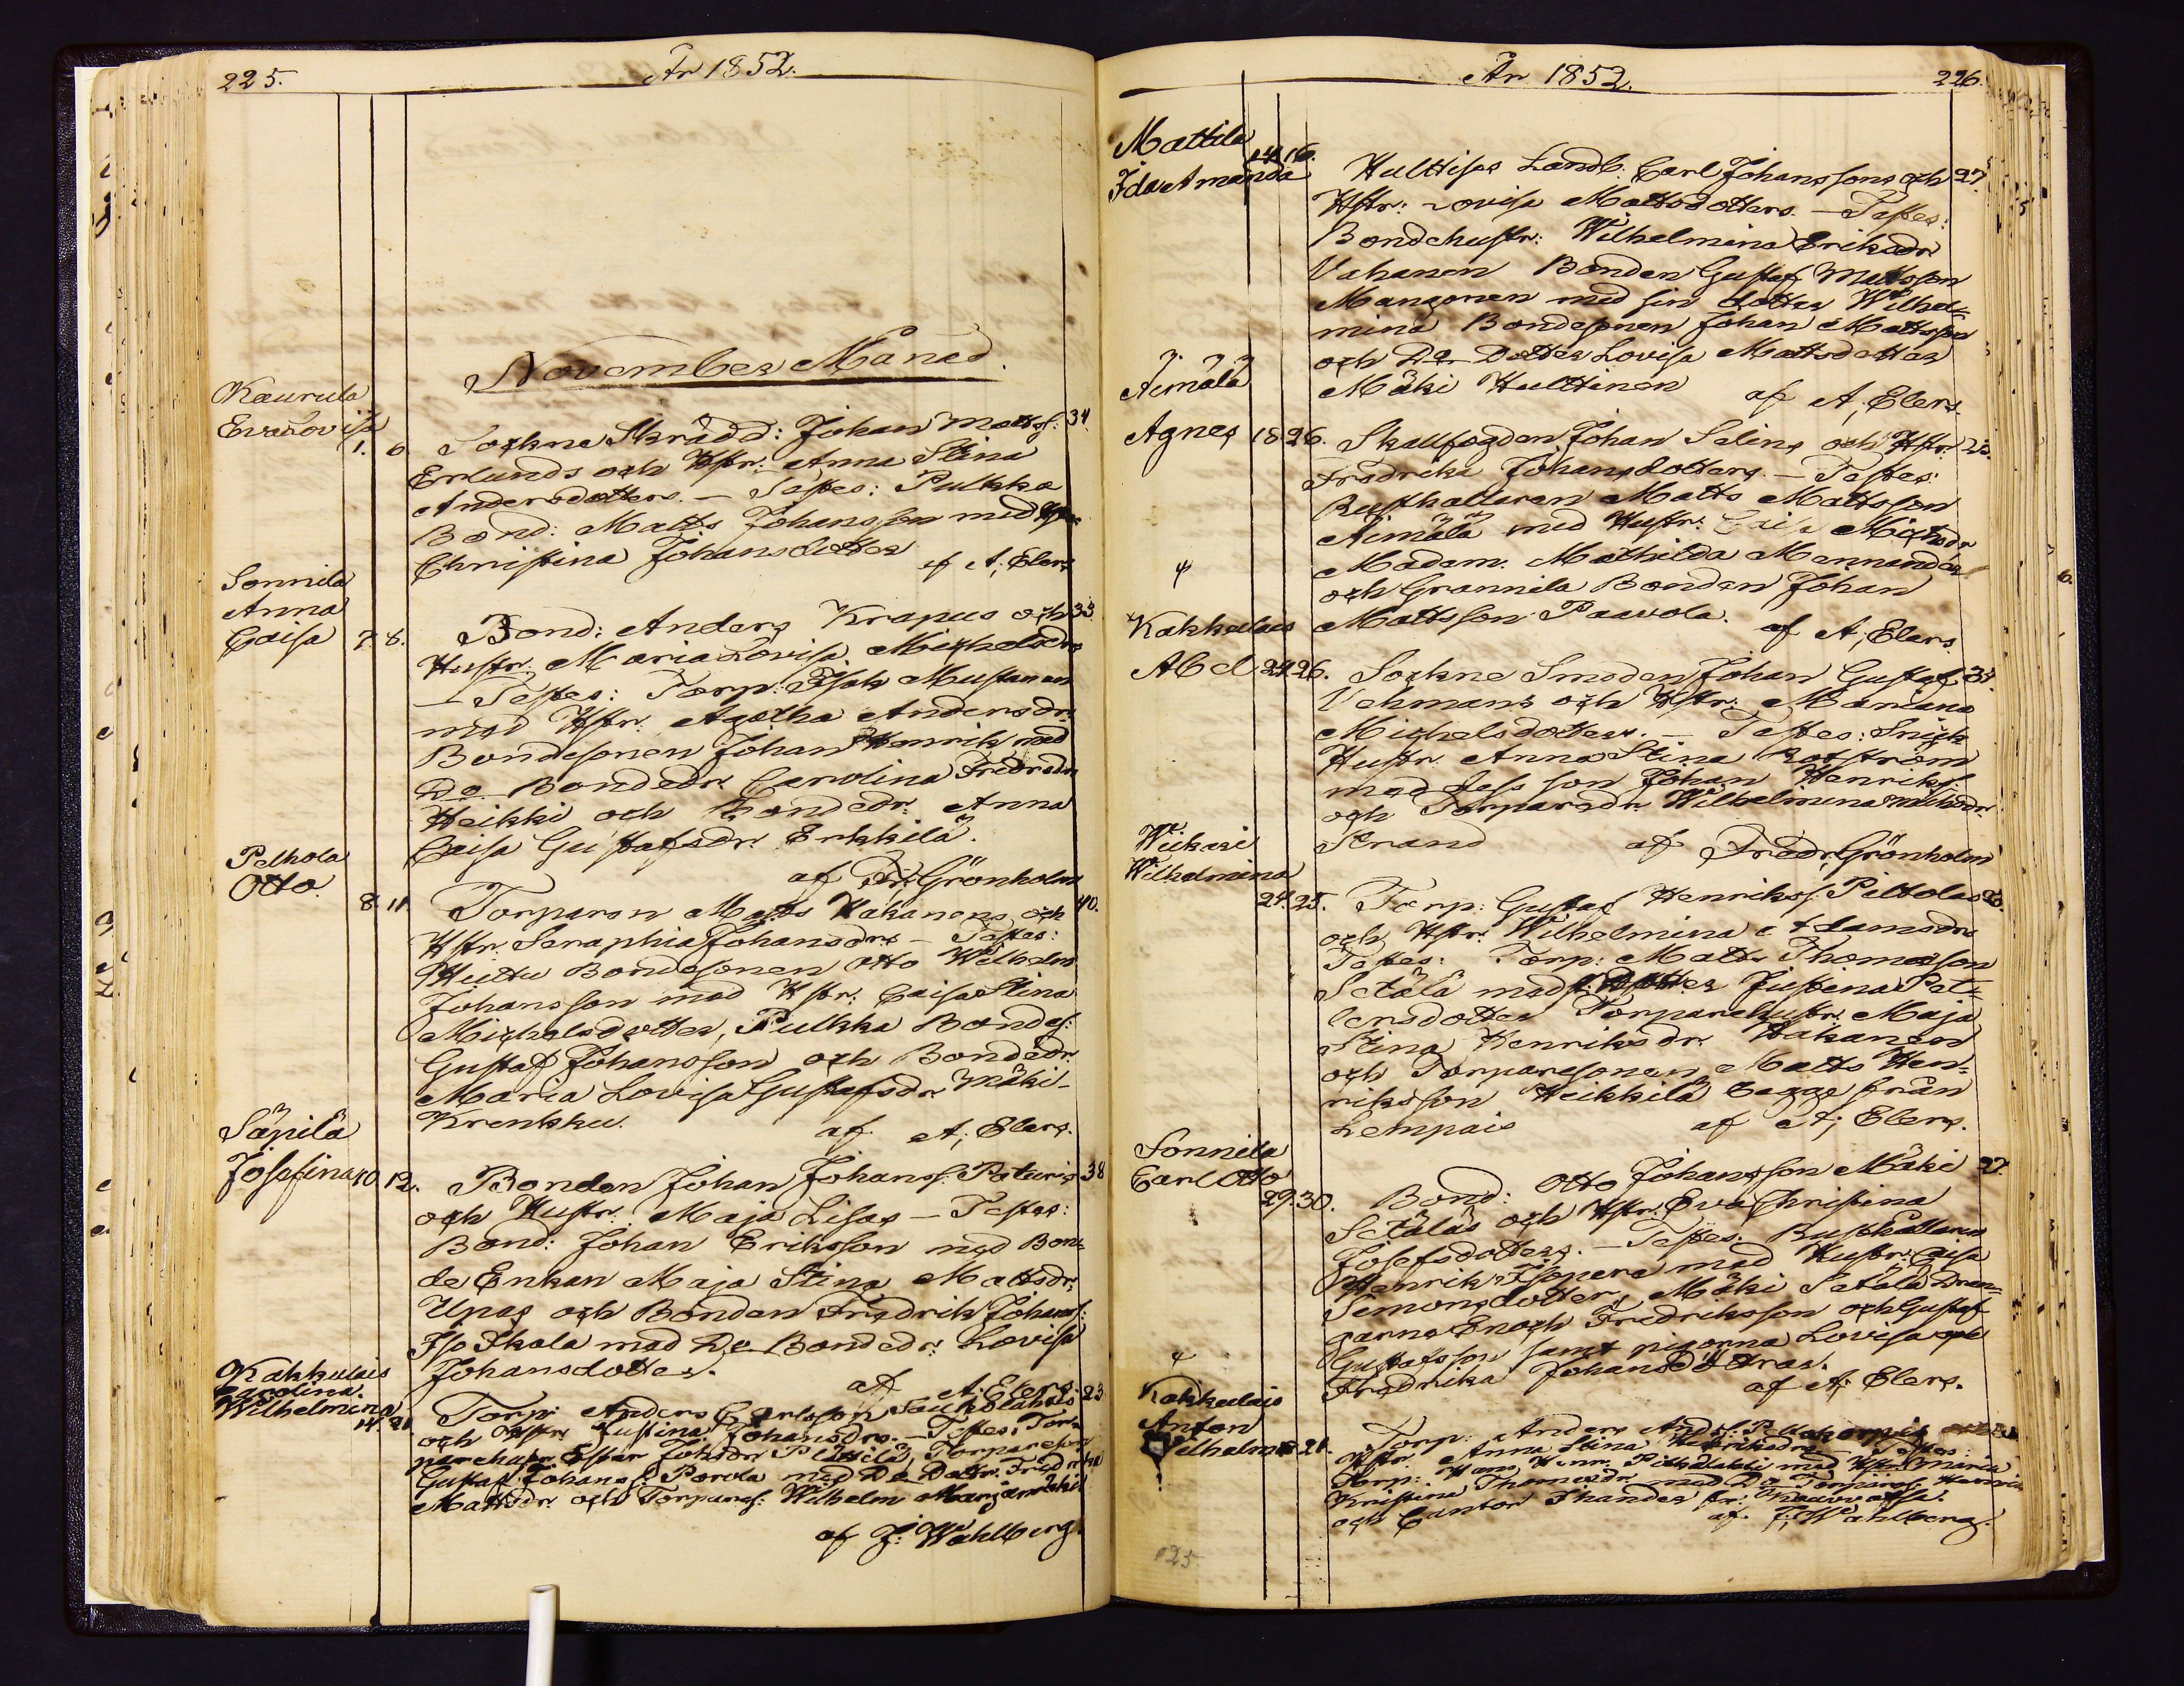 225.
År 1852.
November Månad.
Kaurula
Eva Lovisa
1. 6.
Sockne Skrädd: Johan Mattss. 34.
Erlunds och Hstr. Anna Stina
Andersdotters. — Testes: Pulkka
Bond: Matts Johansson med Hstr
Christina Johansdotter
af A; Elers
Sonnila
Anna
Caisa 7. 8.
Bond: Anders Krapus och 33
Hustr. Maria Lovisa Michelsdrs
— Testes: Torp: Isak Mustanen
med Hstr. Agatha Andersdr.
Bondesonen Johan Henrik med
Do Bondedr. Carolina Fredrsdr
Heikki och Bondedr. Anna
Caisa Gustafsdr. Erkkilä.
af Fr; Grönholm
Pelhola
Otto.
8. 11.
Torparen Matts Hakanens och 40.
Hstr. Seraphia Johansdrs — Testes:
Huttu Bondesonen Otto Wilhelm
Johansson med Hstr. Caisa Stina
Michelsdotter, Pulkka Bondes:
Gustaf Johansson och Bondedr.
Maria Lovisa Gustafsdr. Mäki-
Krenkku.
af A; Elers.
Säpilä
Josefina 10 12.
Bonden Johan Johanss. Poturis 38
och Hustr. Maja Lisas — Testes:
Bond: Johan Eriksson med Bon-
de Enkan Maja Stina Mattsdr.
Upas och Bonden Fredrik Johanss:
Iso Skala med Do Bondedr. Lovisa
Johansdotter.
af A; Elers.
Kakkulais
Carolina
Wilhelmina
14. 21.
Torp: Anders Carlsson Saukolahtis 23
och Hstr. Justina Johansdrs. — Testes: Tor-
parehustr. Ester Johsdr Plättilä, Torpareson
Gustaf Johanss. Parola med Do Dottr. Fredr:ka
Mattsdr. och Torpares: Wilhelm Marjamäki
af J: Wahlberg.
År 1852.
226.
Mattila
Ida Amanda
14. 16.
Hulttisas Landb: Carl Johanssons och 27.
Hstr: Lovisa Mattsdotters. — Testes:
Bondehustr: Wilhelmina Eriksdr
Vahanen Bonden Gustaf Mattsson
Mangonen med sin dotter Wilhel-
mina Bondesonen Johan Mattsson
och Do Dotter Lovisa Mattsdotter
Mäki Hulttinen
af A; Elers.
Äimälä
Agnes 18 26.
Skallfogden Johan Selins och Hstr.
Fredrika Johansdotters. — Testes:
Rusthållaren Matts Mattsson
Äimälä med Hustr: Caisa Michsdr
Madam. Mathilda Mennander
och Grannila Bonden Johan
Mattsson Paavola.
af A; Elers.
Kakkulais
Abel 24 26.
Sockne Smeden Johan Gustaf 34.
Vehmans och Hstr. Mariana
Michelsdotters. — Testes: Snick
Hustr. Anna Stina Rotström
med dess son Johan Henrikss.
och Torparedr. Wilhelmina Michsdr.
Strand
af Fredr; Grönholm
Wiikari
Wilhelmina
24. 25.
Torp: Gustaf Henrikss. Piltolas
och Hstr. Wilhelmina Adamsdrs
Testes: Torp: Matts Thomasson
Setälä med Dotter Justina Pet-
tersdotter Torparehustr. Maja
Stina Henriksdr. Hakanen
och Torparesonen Matts Hen-
riksson Heikkilä begge från
Lempois
af A; Elers.
Sonnila
Carl Otto
29. 30.
Bond: Otto Johansson Mäki 27.
Setäläs och Hstr. Eva Christina
Josefsdotters. — Testes: Rusthållaren
Henrik Isopere med Hustr: Caisa
Simonsdotter, Mäki Setälä Dren-
garne Enoch Fredriksson och Gustaf
Gustafsson samt pigorna Lovisa och
Fredrika Johansdöttrar.
af A; Elers.
Kakkulais
Anton
Wilhelm 18 21.
Torp: Anders Andrs. Pellakorpis
Hstr. Anna Stina Henriksdrs — Testes:
Torp: Hans Henr. Pitkälahti med Hstr. Maria
Kristina Thomasdr. med Do Torpares. Henric
och Cantor Ihander fr: Kauvatsa.
af J: Wahlberg.
025